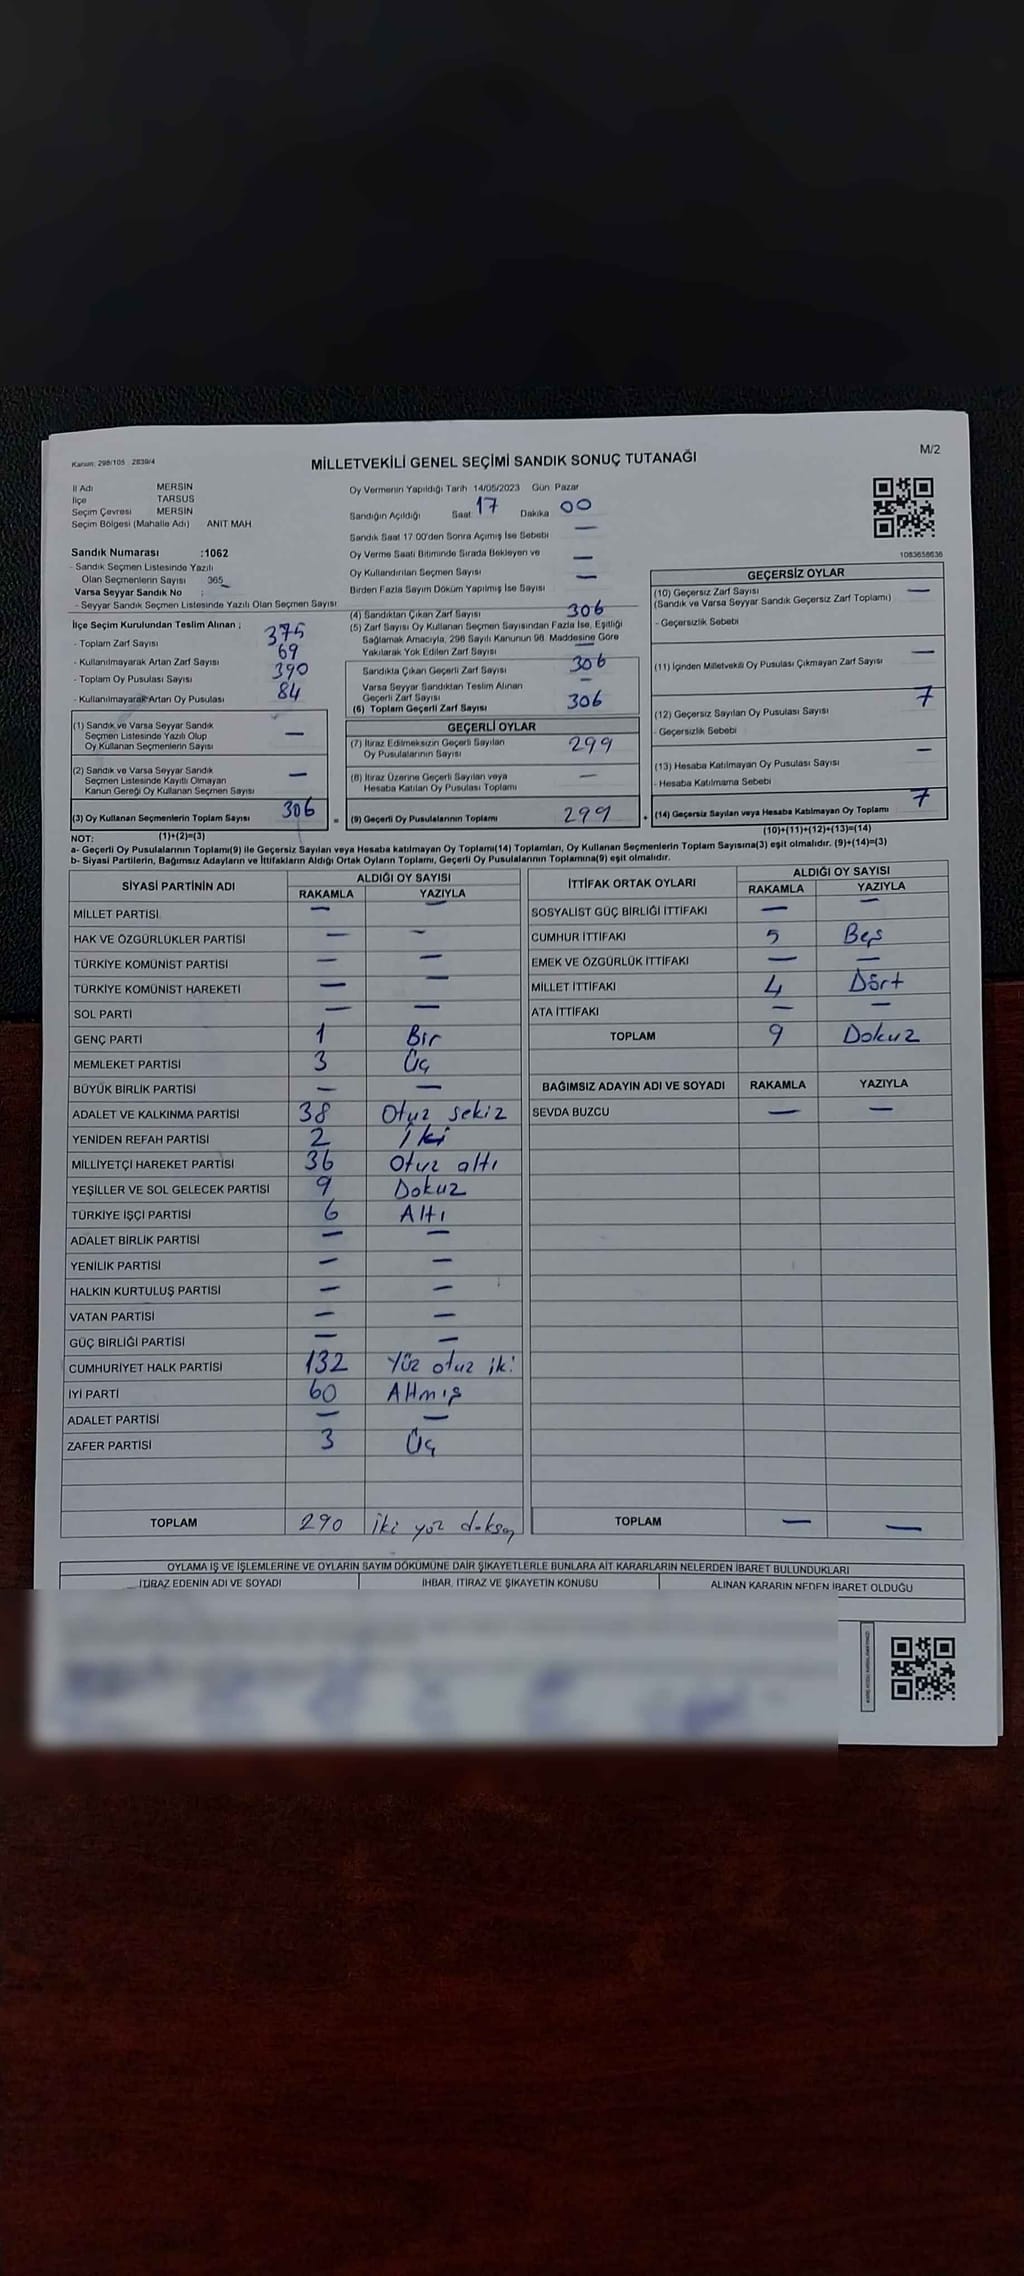 Kanun: 298/105 2839/4
MİLLETVEKİLİ GENEL SEÇİMİ SANDIK SONUÇ TUTANAĞI
M/2
İl Adı MERSİN
İlçe TARSUS
Seçim Çevresi MERSİN
Seçim Bölgesi (Mahalle Adı) ANIT MAH
Sandık Numarası :1062
- Sandık Seçmen Listesinde Yazılı
Olan Seçmenlerin Sayısı 365
Varsa Seyyar Sandık No :
- Seyyar Sandık Seçmen Listesinde Yazılı Olan Seçmen Sayısı
İlçe Seçim Kurulundan Teslim Alınan ;
- Toplam Zarf Sayısı 375
- Kullanılmayarak Artan Zarf Sayısı 69
- Toplam Oy Pusulası Sayısı 390
- Kullanılmayarak Artan Oy Pusulası 84
(1) Sandık ve Varsa Seyyar Sandık
Seçmen Listesinde Yazılı Olup
Oy Kullanan Seçmenlerin Sayısı —
(2) Sandık ve Varsa Seyyar Sandık
Seçmen Listesinde Kayıtlı Olmayan
Kanun Gereği Oy Kullanan Seçmen Sayısı —
(3) Oy Kullanan Seçmenlerin Toplam Sayısı 306 =
(1)+(2)=(3)
Oy Vermenin Yapıldığı Tarih 14/05/2023 Gün Pazar
Sandığın Açıldığı Saat 17 Dakika 00
Sandık Saat 17.00'den Sonra Açılmış İse Sebebi —
Oy Verme Saati Bitiminde Sırada Bekleyen ve
Oy Kullandırılan Seçmen Sayısı —
Birden Fazla Sayım Döküm Yapılmış İse Sayısı —
(4) Sandıktan Çıkan Zarf Sayısı 306
(5) Zarf Sayısı Oy Kullanan Seçmen Sayısından Fazla İse, Eşitliği
Sağlamak Amacıyla, 298 Sayılı Kanunun 98. Maddesine Göre
Yakılarak Yok Edilen Zarf Sayısı —
Sandıkta Çıkan Geçerli Zarf Sayısı 306
Varsa Seyyar Sandıktan Teslim Alınan
Geçerli Zarf Sayısı —
(6) Toplam Geçerli Zarf Sayısı 306
GEÇERLİ OYLAR
(7) İtiraz Edilmeksizin Geçerli Sayılan
Oy Pusulalarının Sayısı 299
(8) İtiraz Üzerine Geçerli Sayılan veya
Hesaba Katılan Oy Pusulası Toplamı —
(9) Geçerli Oy Pusulalarının Toplamı 299 +
1083658636
GEÇERSİZ OYLAR
(10) Geçersiz Zarf Sayısı —
(Sandık ve Varsa Seyyar Sandık Geçersiz Zarf Toplamı)
- Geçersizlik Sebebi
(11) İçinden Milletvekili Oy Pusulası Çıkmayan Zarf Sayısı —
(12) Geçersiz Sayılan Oy Pusulası Sayısı 7
- Geçersizlik Sebebi
(13) Hesaba Katılmayan Oy Pusulası Sayısı —
- Hesaba Katılmama Sebebi
(14) Geçersiz Sayılan veya Hesaba Katılmayan Oy Toplamı 7
(10)+(11)+(12)+(13)=(14)
NOT:
a- Geçerli Oy Pusulalarının Toplamı(9) ile Geçersiz Sayılan veya Hesaba katılmayan Oy Toplamı(14) Toplamları, Oy Kullanan Seçmenlerin Toplam Sayısına(3) eşit olmalıdır. (9)+(14)=(3)
b- Siyasi Partilerin, Bağımsız Adayların ve İttifakların Aldığı Ortak Oyların Toplamı, Geçerli Oy Pusulalarının Toplamına(9) eşit olmalıdır.
SİYASİ PARTİNİN ADI ALDIĞI OY SAYISI
RAKAMLA YAZIYLA
MİLLET PARTİSİ — —
HAK VE ÖZGÜRLÜKLER PARTİSİ — —
TÜRKİYE KOMÜNİST PARTİSİ — —
TÜRKİYE KOMÜNİST HAREKETİ — —
SOL PARTİ — —
GENÇ PARTİ 1 Bir
MEMLEKET PARTİSİ 3 Üç
BÜYÜK BİRLİK PARTİSİ — —
ADALET VE KALKINMA PARTİSİ 38 Otuz sekiz
YENİDEN REFAH PARTİSİ 2 İki
MİLLİYETÇİ HAREKET PARTİSİ 36 Otuz altı
YEŞİLLER VE SOL GELECEK PARTİSİ 9 Dokuz
TÜRKİYE İŞÇİ PARTİSİ 6 Altı
ADALET BİRLİK PARTİSİ — —
YENİLİK PARTİSİ — —
HALKIN KURTULUŞ PARTİSİ — —
VATAN PARTİSİ — —
GÜÇ BİRLİĞİ PARTİSİ — —
CUMHURİYET HALK PARTİSİ 132 Yüz otuz iki
İYİ PARTİ 60 Altmış
ADALET PARTİSİ — —
ZAFER PARTİSİ 3 Üç
TOPLAM 290 iki yüz doksan
İTTİFAK ORTAK OYLARI ALDIĞI OY SAYISI
RAKAMLA YAZIYLA
SOSYALİST GÜÇ BİRLİĞİ İTTİFAKI — —
CUMHUR İTTİFAKI 5 Beş
EMEK VE ÖZGÜRLÜK İTTİFAKI — —
MİLLET İTTİFAKI 4 Dört
ATA İTTİFAKI — —
TOPLAM 9 Dokuz
BAĞIMSIZ ADAYIN ADI VE SOYADI RAKAMLA YAZIYLA
SEVDA BUZCU — —
TOPLAM — —
OYLAMA İŞ VE İŞLEMLERİNE VE OYLARIN SAYIM DÖKÜMÜNE DAİR ŞİKAYETLERLE BUNLARA AİT KARARLARIN NELERDEN İBARET BULUNDUKLARI
İTİRAZ EDENİN ADI VE SOYADI İHBAR, İTİRAZ VE ŞİKAYETİN KONUSU ALINAN KARARIN NEDEN İBARET OLDUĞU